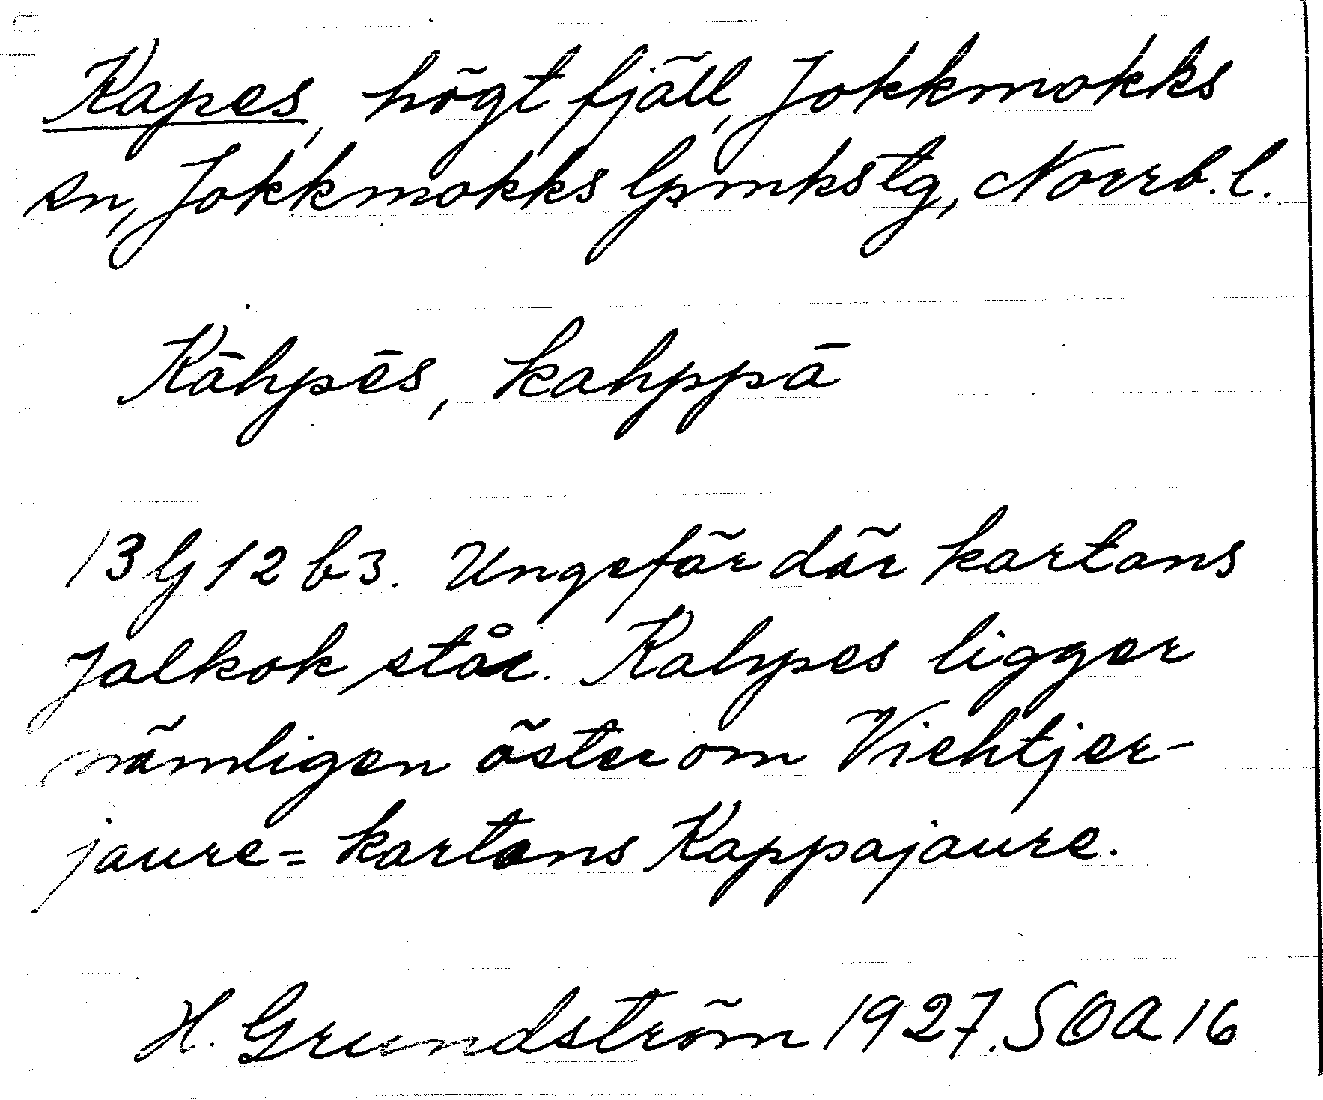 Kapes, högt fjäll, Jokkmokks
sn, Jokkmokks lpmkstg, Norrb. l.
Kāhpēs, kahppā
13 G 12 b 3. Ungefär där kartans
Jalkok står. Kahpes ligger
nämligen öster om Viehtjer-
jaure = kartans Kappajaure.
H. Grundström 1927. SOA 16